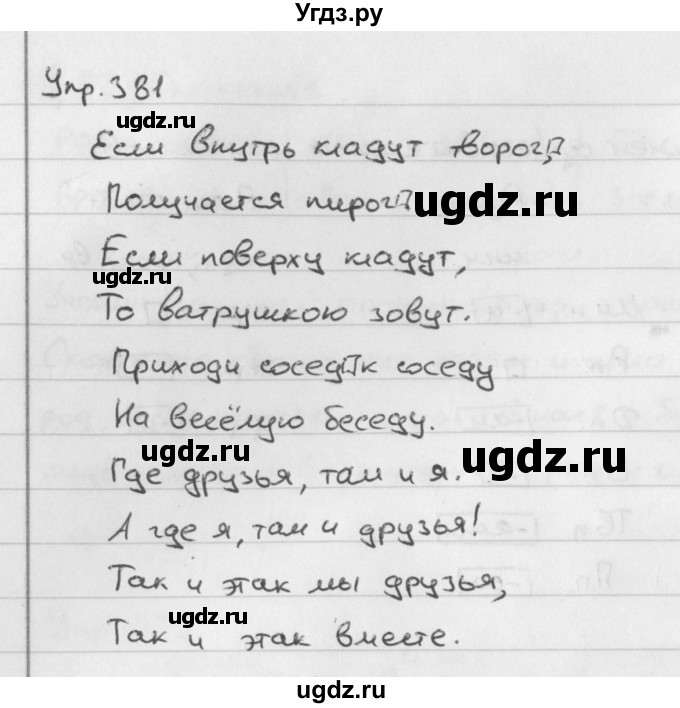 Угдз.ру
Упр. 381
ugdz.ru
Если внутрь кладут творог▯,
Получается пирог▯
ugdz.ru
Если поверху кладут,
ugdz.ru
То ватрушкою зовут.
Приходи сосед▯ к соседу
На весёлую беседу.
ugdz.ru
ugdz.ru
Где друзья, там и я.
А где я, там и друзья!
Так и этак мы друзья,
ugdz.ru
Так и этак вместе.
ugdz.ru